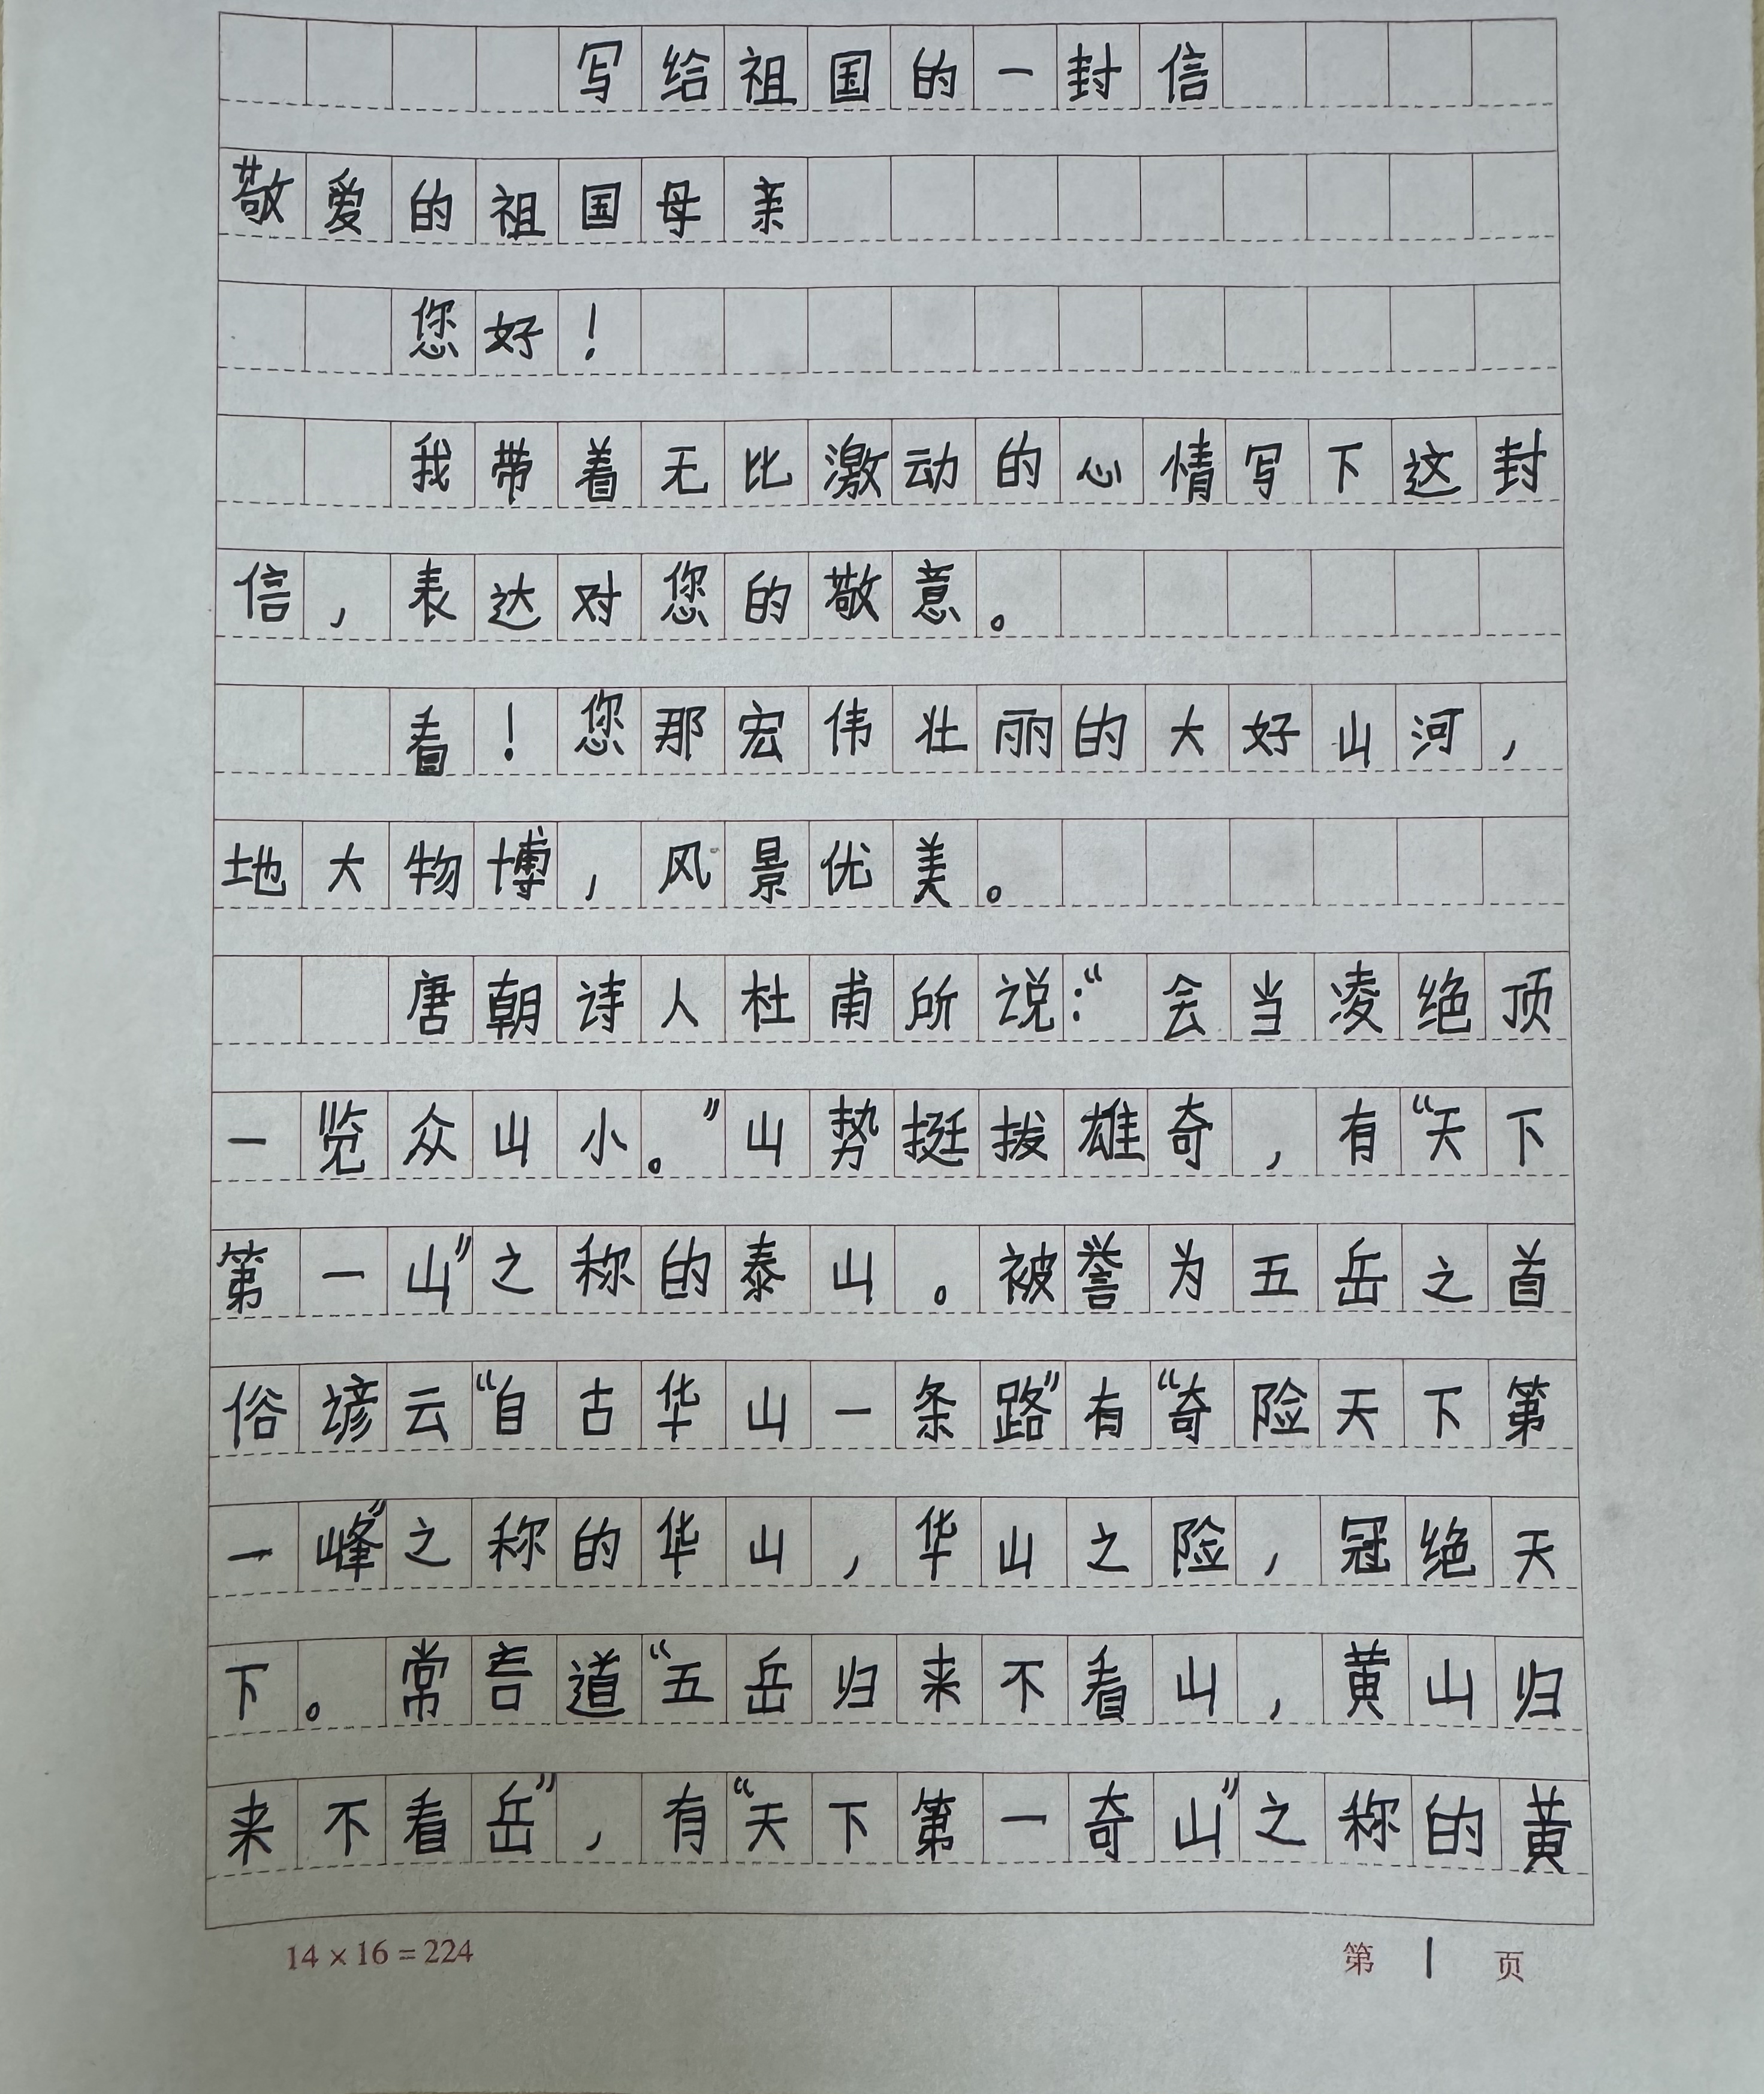 写给祖国的一封信
敬爱的祖国母亲
您好！
我带着无比激动的心情写下这封
信，表达对您的敬意。
看！您那宏伟壮丽的大好山河，
地大物博，风景优美。
唐朝诗人杜甫所说：“会当凌绝顶
一览众山小。”山势挺拔雄奇，有“天下
第一山”之称的泰山。被誉为五岳之首
俗谚云“自古华山一条路”有“奇险天下第
一峰”之称的华山，华山之险，冠绝天
下。常言道“五岳归来不看山，黄山归
来不看岳”，有“天下第一奇山”之称的黄
14×16=224
第 1 页